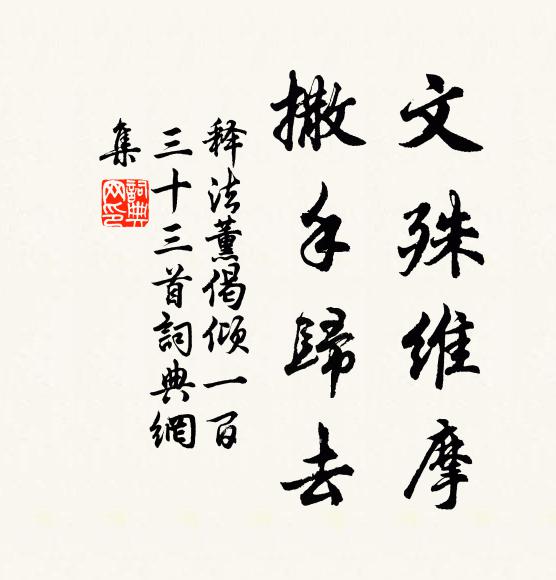 文殊維摩
撒手歸去
释法薰偈倾一百
三十三首詞典網
集
詞典
网印